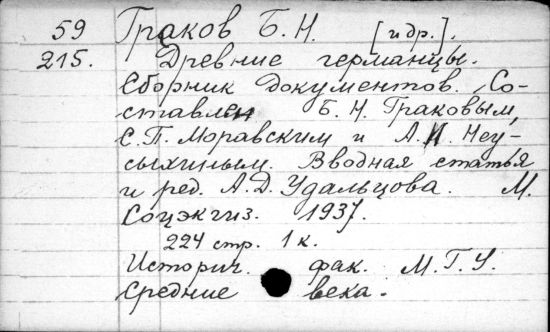 59 Граков Б. Н. [и др.].
215. Древние германцы.
Сборник документов. Со-
ставлен Б. Н. Граковым,
С. П. Моравским и А. И. Неу-
сыхиным. Вводная статья
и ред. А. Д. Удальцова. М.
Соцэкгиз. 1937.
224 стр. 1 к.
Историч. фак. М. Г. У.
Средние века.